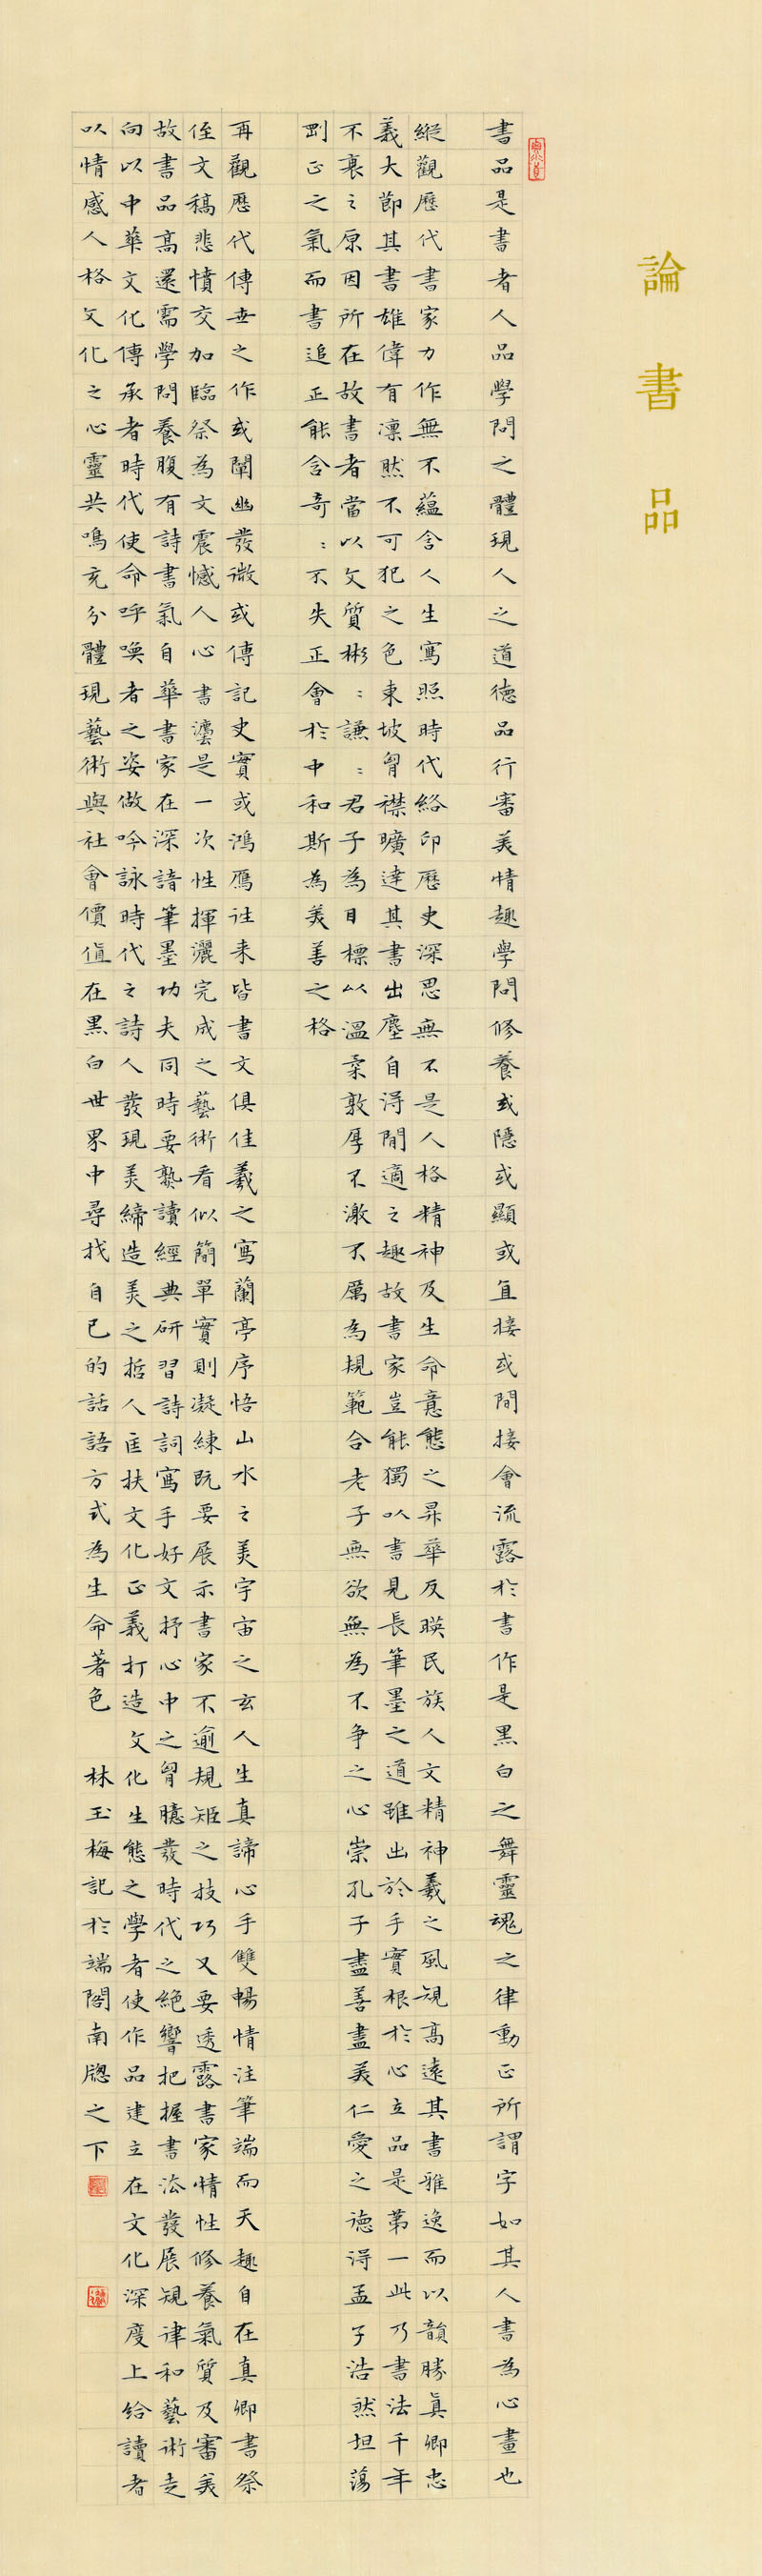 論書品
書品是書者人品學問之體現人之道德品行審美情趣學問修養或隱或顯或直接或間接會流露於書作是黑白之舞靈魂之律動正所謂字如其人書為心畫也
縱觀歷代書家力作無不蘊含人生寫照時代絡印歷史深思無不是人格精神及生命意態之昇華反映民族人文精神羲之風規高遠其書雅逸而以韻勝真卿忠
義大節其書雄偉有凜然不可犯之色東坡胷襟曠達其書出塵自得閒適之趣故書家豈能獨以書見長筆墨之道雖出於手實根於心立品是第一此乃書法千年
不衰之原因所在故書者當以文質彬：謙：君子為目標以溫柔敦厚不激不厲為規範合老子無欲無為不爭之心崇孔子盡善盡美仁愛之德得孟子浩然坦蕩
剛正之氣而書追正能含奇：不失正會於中和斯為美善之格
再觀歷代傳世之作或闡幽發微或傳記史實或鴻雁往来皆書文俱佳羲之寫蘭亭序悟山水之美宇宙之玄人生真諦心手雙暢情注筆端而天趣自在真卿書祭
侄文稿悲憤交加臨祭為文震憾人心書瀍是一次性揮灑完成之藝術看似簡單實則凝練既要展示書家不逾規矩之技巧又要透露書家情性修養氣質及審美
故書品高還需學問養腹有詩書氣自華書家在深諳筆墨功夫同時要熟讀經典研習詩詞寫手好文抒心中之胷臆發時代之絕響把握書法發展規律和藝術走
向以中華文化傳承者時代使命呼喚者之姿做吟詠時代之詩人發現美締造美之哲人匡扶文化正義打造文化生態之學者使作品建立在文化深度上给讀者
以情感人格文化之心靈共鳴充分體現藝術與社會價值在黑白世界中尋找自己的話語方式為生命著色 林玉梅記於端閣南牕之下